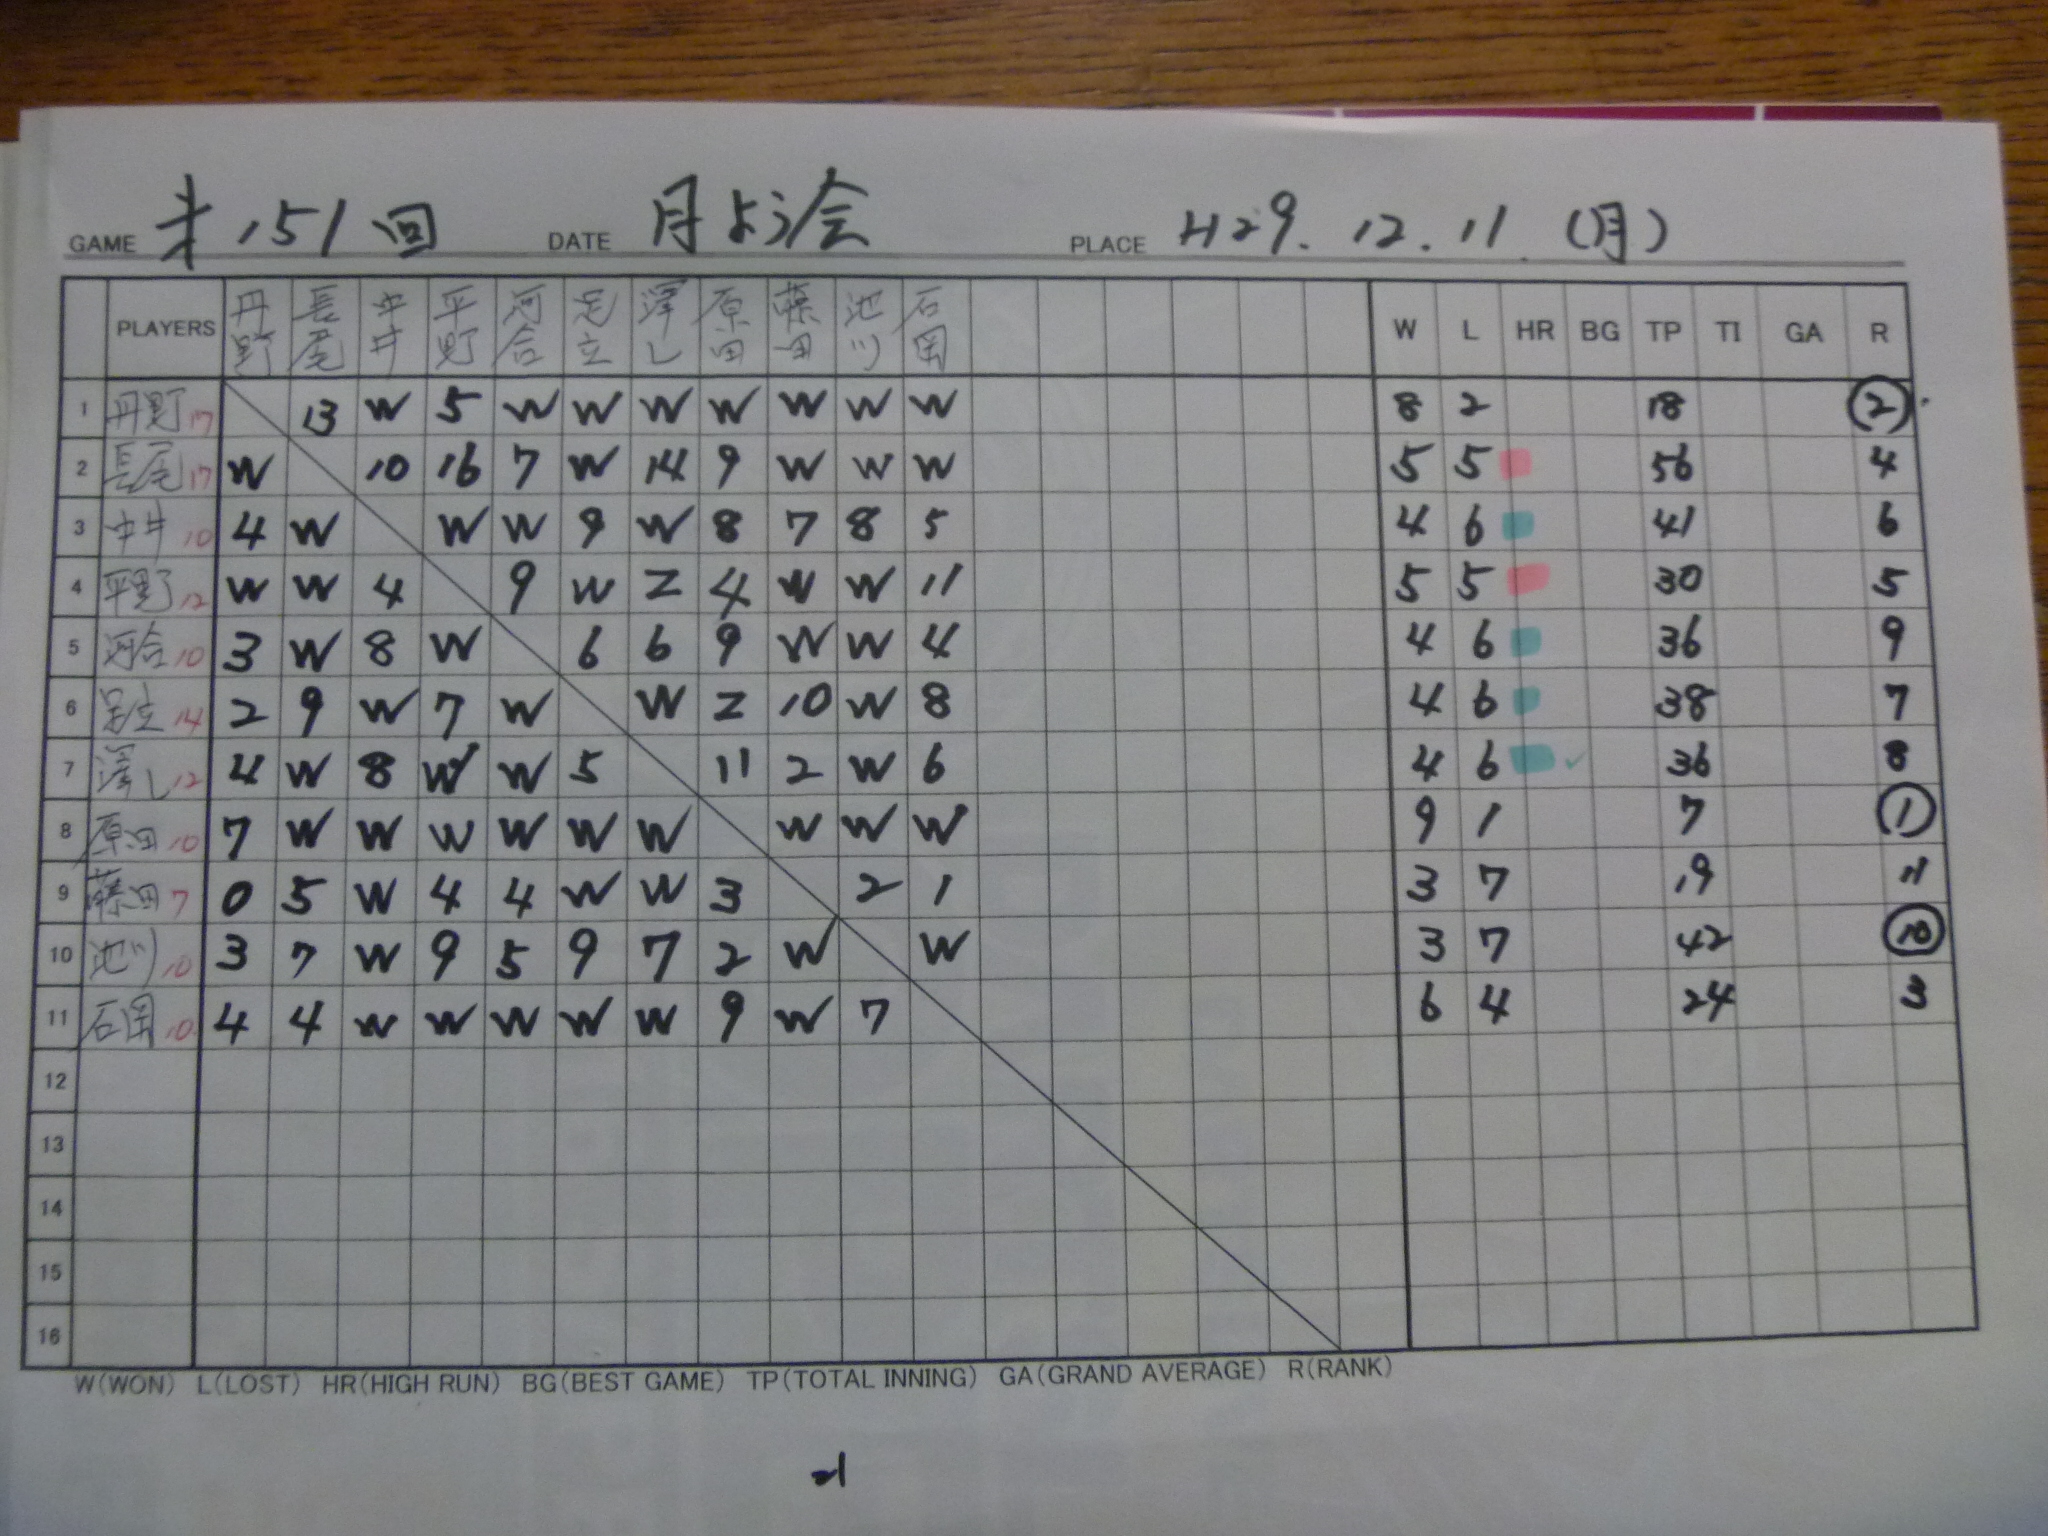 GAME 第151回 DATE 月よう会 PLACE H29.12.11(月)
PLAYERS 丹野 長尾 中井 平野 河合 足立 澤し 原田 藤田 池川 石岡 W L HR BG TP TI GA R
1 丹野 17 13 W 5 W W W W W W W 8 2 18 2
2 長尾 17 W 10 16 7 W 14 9 W W W 5 5 56 4
3 中井 10 4 W W W 9 W 8 7 8 5 4 6 41 6
4 平野 12 W W 4 9 W 2 4 W W 11 5 5 30 5
5 河合 10 3 W 8 W 6 6 9 W W 4 4 6 36 9
6 足立 14 2 9 W 7 W W 2 10 W 8 4 6 38 7
7 澤し 12 4 W 8 W W 5 11 2 W 6 4 6 36 8
8 原田 10 7 W W W W W W W W W 9 1 7 1
9 藤田 7 0 5 W 4 4 W W 3 2 1 3 7 19 11
10 池川 10 3 7 W 9 5 9 7 2 W W 3 7 42 10
11 石岡 10 4 4 W W W W W 9 W 7 6 4 24 3
12
13
14
15
16
W(WON) L(LOST) HR(HIGH RUN) BG(BEST GAME) TP(TOTAL INNING) GA(GRAND AVERAGE) R(RANK)